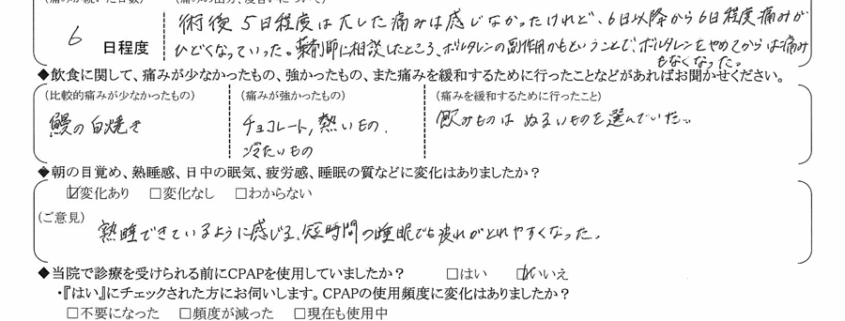 6 日程度
術後5日程度は大した痛みは感じなかったけれど、6日以降から6日程度痛みが
ひどくなっていった。薬剤師に相談したところ、ボルタレンの副作用かもということで、ボルタレンをやめてからは痛み
もなくなった。
◆飲食に関して、痛みが少なかったもの、強かったもの、また痛みを緩和するために行ったことなどがあればお聞かせください。
(比較的痛みが少なかったもの) (痛みが強かったもの) (痛みを緩和するために行ったこと)
鰻の白焼き チョコレート, 熱いもの. 飲みものはぬるいものを選んでいた。
冷たいもの
◆朝の目覚め、熟睡感、日中の眠気、疲労感、睡眠の質などに変化はありましたか?
☑変化あり □変化なし □わからない
(ご意見)
熟睡できているように感じる、短時間の睡眠でも疲れがとれやすくなった。
◆当院で診療を受けられる前にCPAPを使用していましたか? □はい ☑いいえ
・『はい』にチェックされた方にお伺いします。CPAPの使用頻度に変化はありましたか?
□不要になった □頻度が減った □現在も使用中